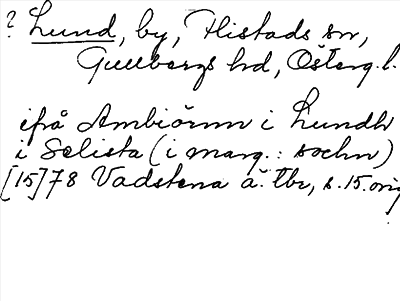 ? Lund, by, Flistads sn,
Gullbergs hd, Österg.l.
ifrå Ambiörnn i Lundh
i Selista (i marg.: sochn)
[15]78 Vadstena ä. tbr, s.15.orig